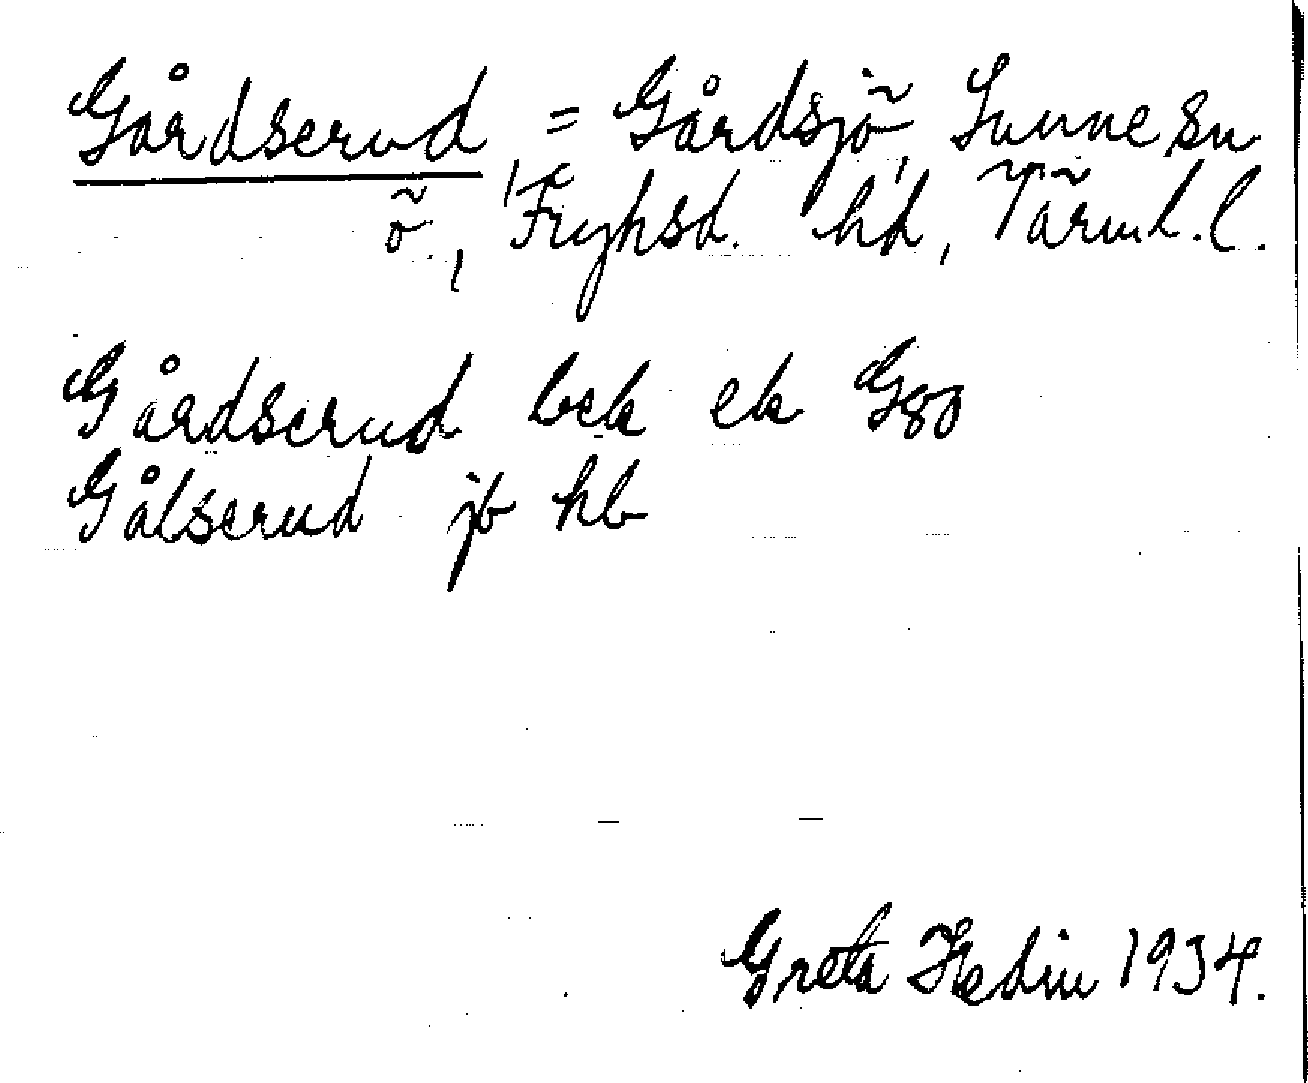 Gårdserud = Gårdsjö, Sunne sn
ö., Fryksd. hd, Värml. l.
Gårdserud bek ek G80
Gålserud jb hb
Greta Hedin 1934.